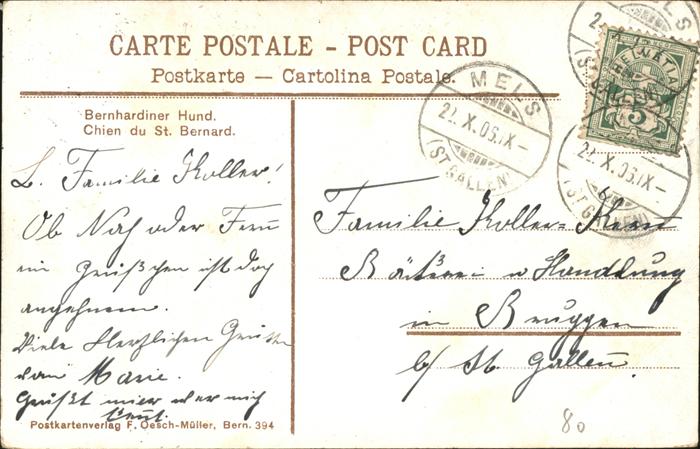 CARTE POSTALE - POST CARD
Postkarte — Cartolina Postale.
Bernhardiner Hund.
Chien du St. Bernard.
L. Familie Koller!
Ob Nah oder Fern
ein Grüßchen ist doch
angenehm.
Viele Herzlichen Grüsse
von Marie.
Grüßt mier wer mich
kent.
Postkartenverlag F. Oesch-Müller, Bern. 394
MELS
22. X. 06. IX-
(ST. GALLEN)
HELVETIA
5
MELS
22. X. 06. IX-
(ST. GALLEN)
Familie Koller-Kern
Bäckerei u Handlung
in Bruggen
b/ St. Gallen.
80